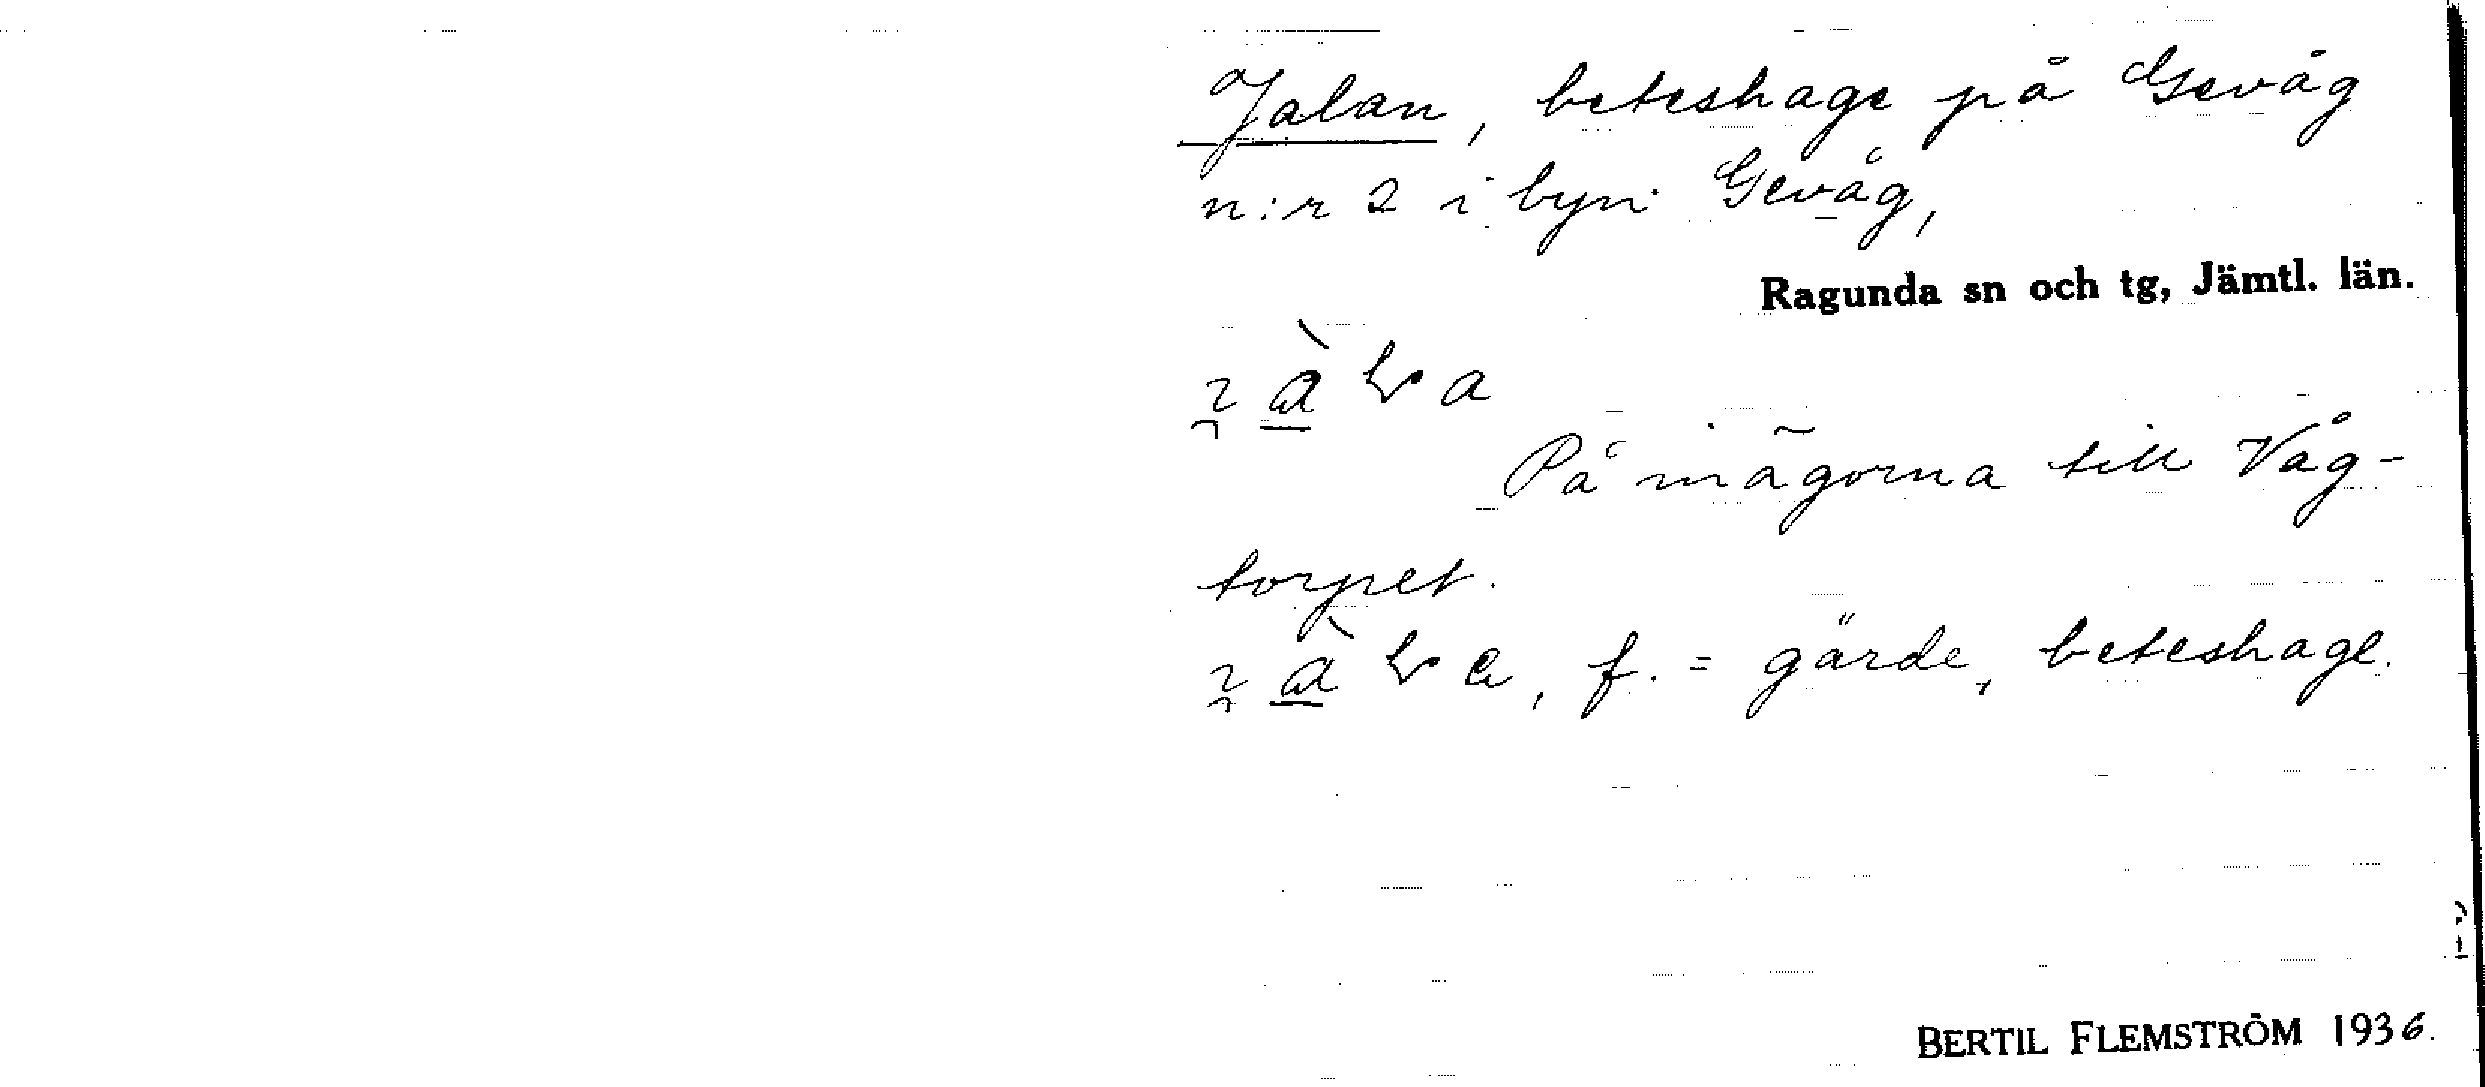 Jalan, beteshage på Gevåg
n:r 2 i byn Gevåg,
Ragunda sn och tg, Jämtl. län.
På inägorna till Våg-
torpet.
f. = gärde, beteshage.
BERTIL FLEMSTRÖM 1936.